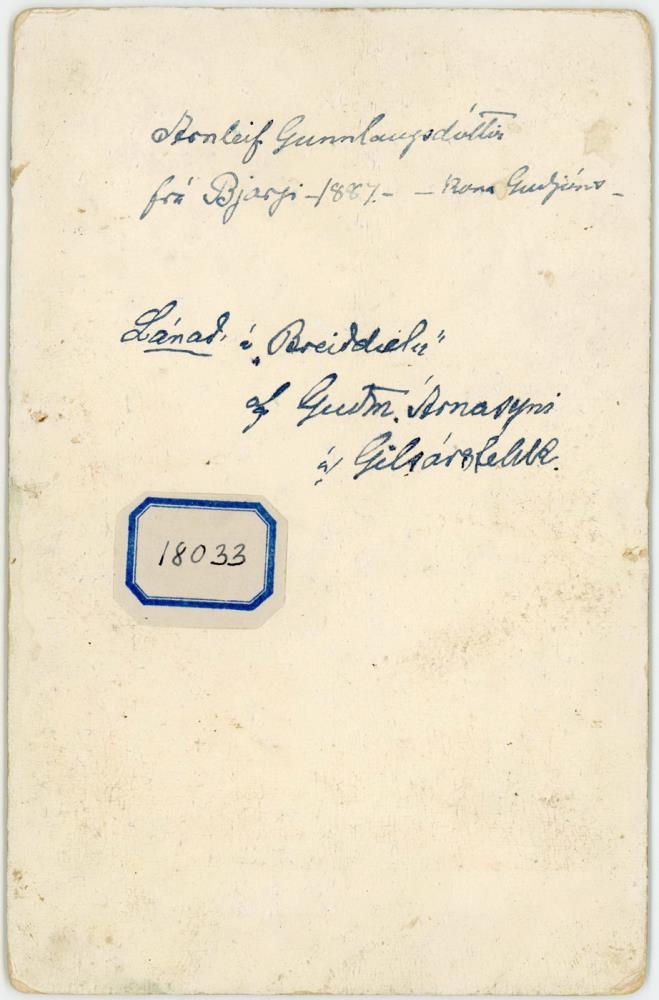 Arnleif Gunnlaugsdóttir
frá Bjargi - 1887. - - Kona Guðjóns -
Lánað í „Breiðdælu"
af Guðm. Árnasyni
á Gilsárstekk.
18033